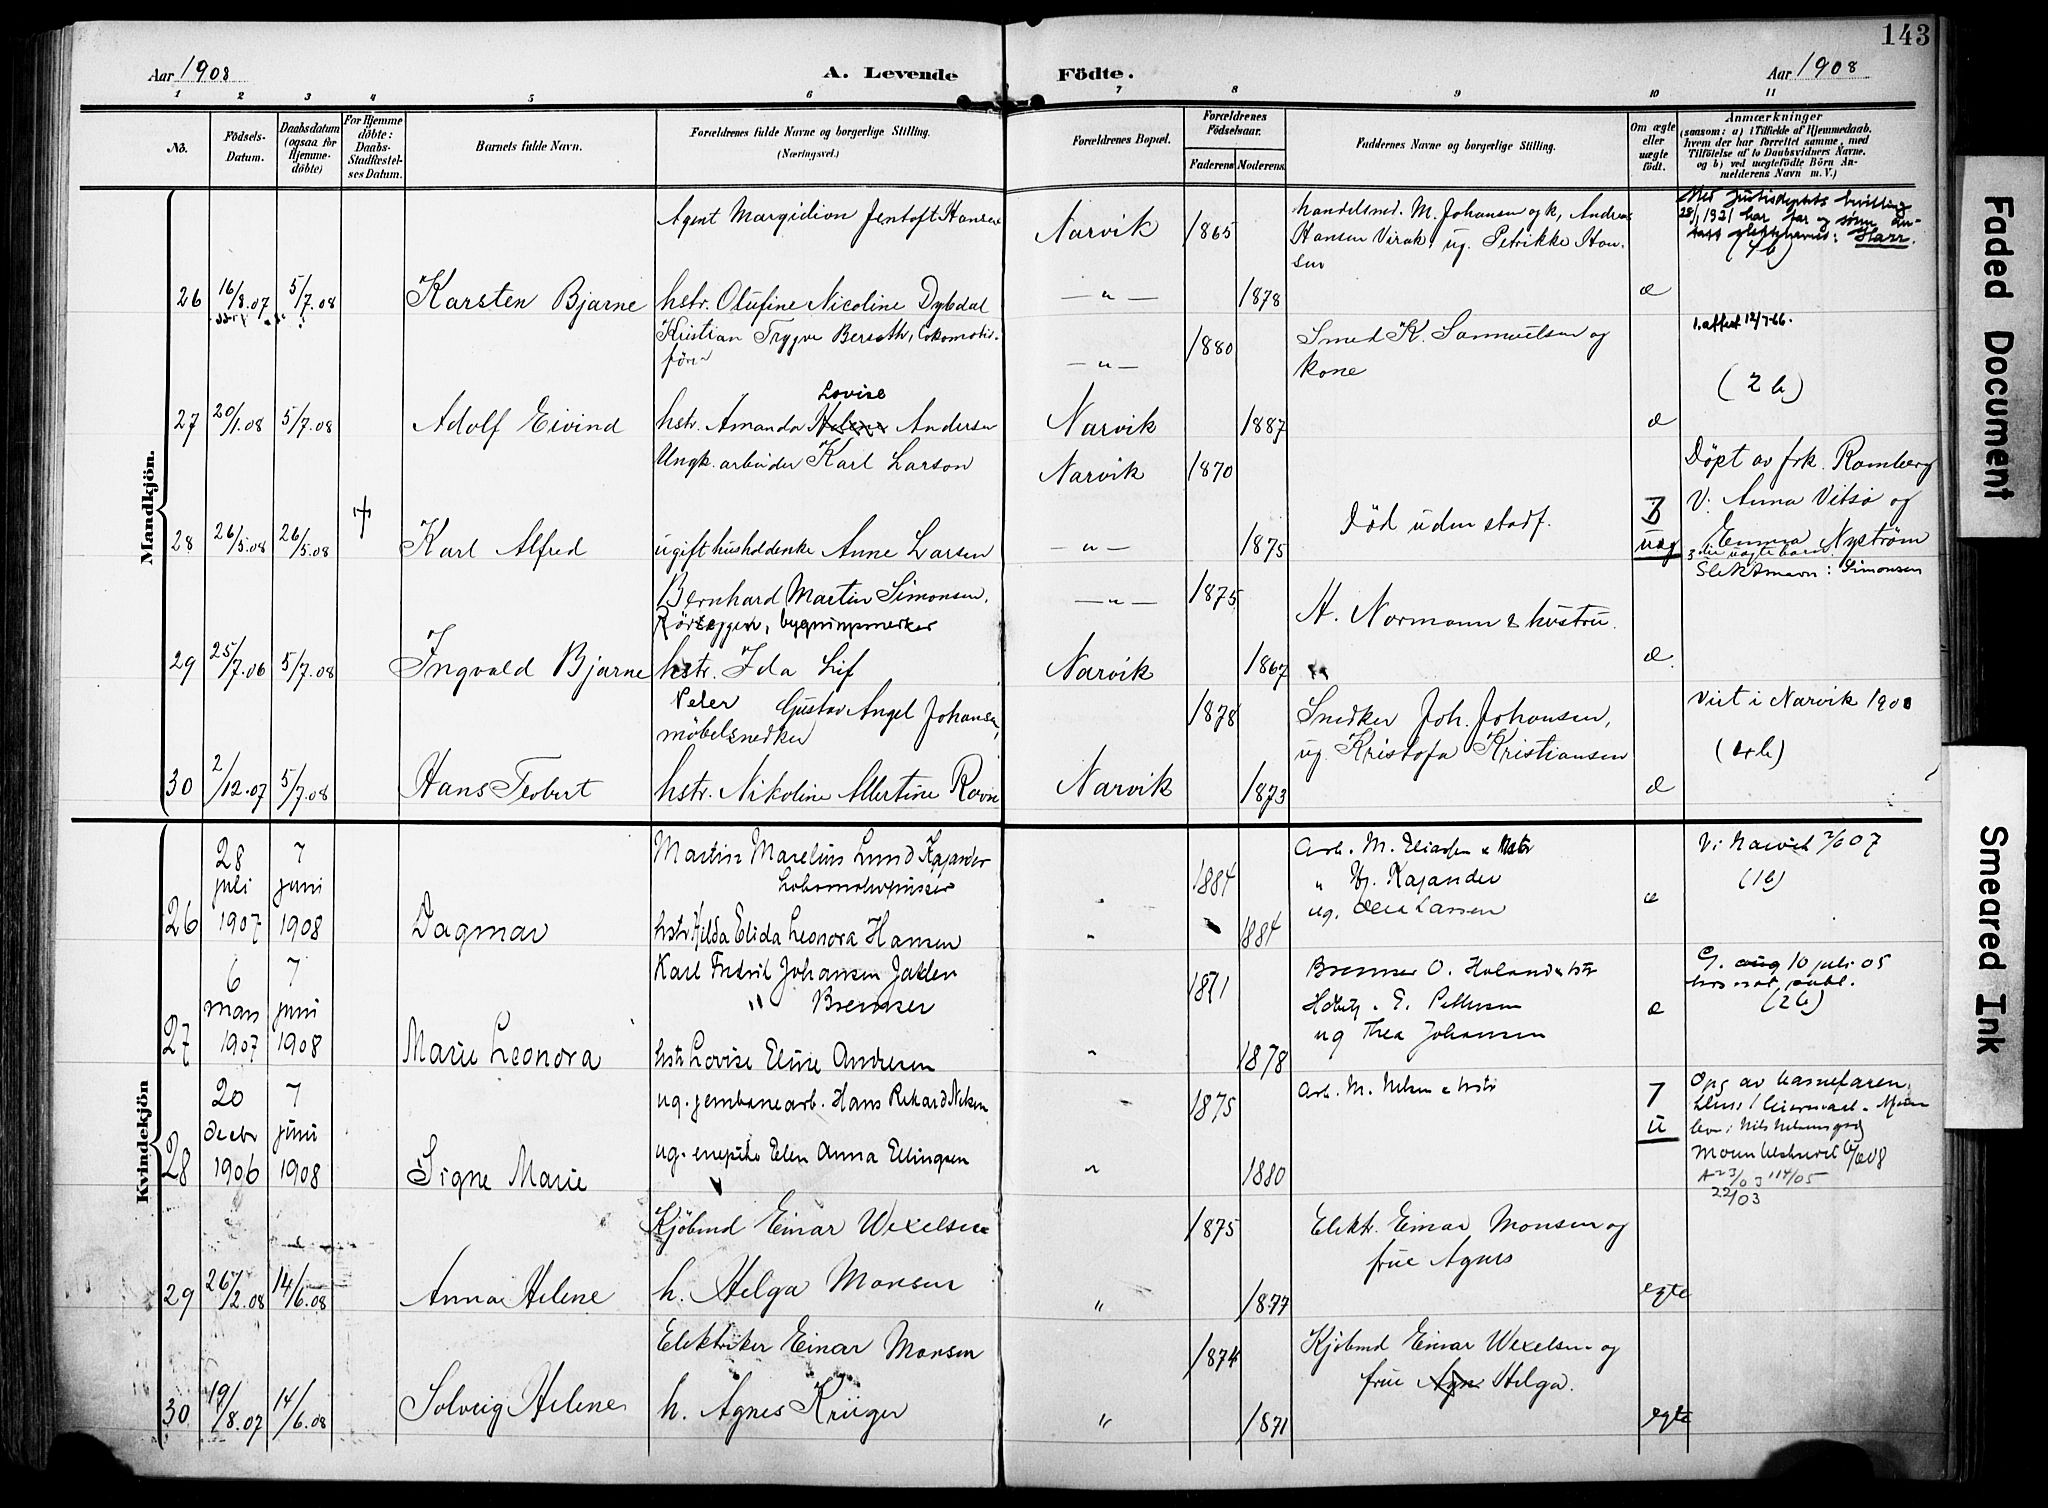 143
Aar 1908
A. Levende Födte.
Aar 1908
1 2 3 4 5 6 7 8 9 10 11
No.
Födsels-Datum.
Daabsdatum (ogsaa for Hjemme-döbte)
For Hjemme döbte: Daabs-Stadfestel-ses Datum.
Barnets fulde Navn.
Forældrenes fulde Navne og borgerlige Stilling.
(Næringsvei.)
Forældrenes Bopæl.
Forældrenes Födselsaar.
Faderens Moderens
Faddernes Navne og borgerlige Stilling.
Om ægte eller uægte födt.
Anmærkninger
(saasom: a) i Tilfælde af Hjemmedaab,
hvem der har forrettet samme, med
Tilföielse af to Daabsvidners Navne.
og b) ved uegtefödte Börn An-
melderens Navn m. V.)
Mandkjön.
Agent Margidion Jentoft Hansen
Narvik 1865
Handelsmd. M. Johansen og k, Andreas
Hansen Virak, ug. Petrikke Han-
sen
28/1 1921 har far og sønn an-
tatt slektsnavnet: Harr.
26 16/8.07 5/7.08 Karsten Bjarne hstr. Olufine Nicoline Dybdal — " — 1878 æ
Kristian Trygve Berseth, Lokomotiv-
fører
— " — 1880
Smed K. Samuelsen og
kone
1.attest 12/7-66.
(2 b)
Lovise
27 20/1.08 5/7.08 Adolf Eivind hstr. Amanda Andersen Narvik 1887 æ
Ungk. arbeider Karl Larson Narvik 1870
Döpt av frk. Ramberg
V: Anna Vitsø og
Emma Nyström
28 26/5.08 26/5.08 † Karl Alfred ugift husholderske Anne Larsen — " — 1875 Död uden stadf. uæg
3die uægte barn.
Slektsnavn: Simonsen
Bernhard Martin Simonsen,
bygningssnekker
— " — 1875
H. Normann & hustru.
29 25/7.06 5/7.08 Ingvald Bjarne hstr. Ida Lif Narvik 1867 æ.
Peder Gustav Angel Johansen,
möbelsnedker
1878
Snedker Joh. Johansen,
ug. Kristofa Kristiansen
Viet i Narvik 1900
(4 b)
30 2/12.07 5/7.08 Hans Teobert hstr. Nikoline Albertine Ravn Narvik 1873 æ
Kvindekjön
Martin Marelius Lund Kajander
Lokomotivpusser
1884
Arb. M. Eliassen & hstr
" Hj. Kajander
ug. Olea Larsen
V: Narvik 2/6 07
(1 b)
26 28 juli 1907 7 juni 1908 Dagmar hstr Hilda Elida Leonora Hansen " 1884 æ
Karl Fredrik Johansen Jakken
Bremser
1871
Bremser O. Haland & hstr
Hdbetj. E. Pettersen
ug Thea Johansen
G. 10 juli 05
(2 b)
27 6 mars 1907 7 juni 1908 Marie Leonora hstr Lovise Elise Andresen " 1878 æ
ug. jernbanearb. Hans Rikard Nilsen " 1875
Arb. M. Nilsen & hstr
Opg av barnefaren.
28 20 decbr 1906 7 juni 1908 Signe Marie ug. enepike Elen Anna Ellingsen " 1880 u
22/03
Kjöbmd Einar Wexelsen 1875
Elektr. Einar Monsen og
frue Agnes
29 26/2.08 14/6.08 Anna Helene h. Helga Monsen " 1877 egte
Elektriker Einar Monsen 1874
Kjöbmd Einar Wexelsen og
frue Helga.
30 19/8.07 14/6.08 Solveig Helene h. Agnes Krüger " 1871 egte
Faded Document
Smeared Ink